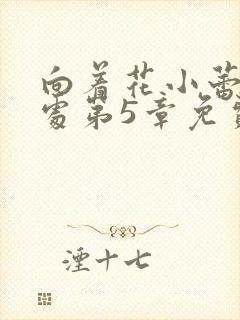 向着花小蕾
处第5章免费
湮十七